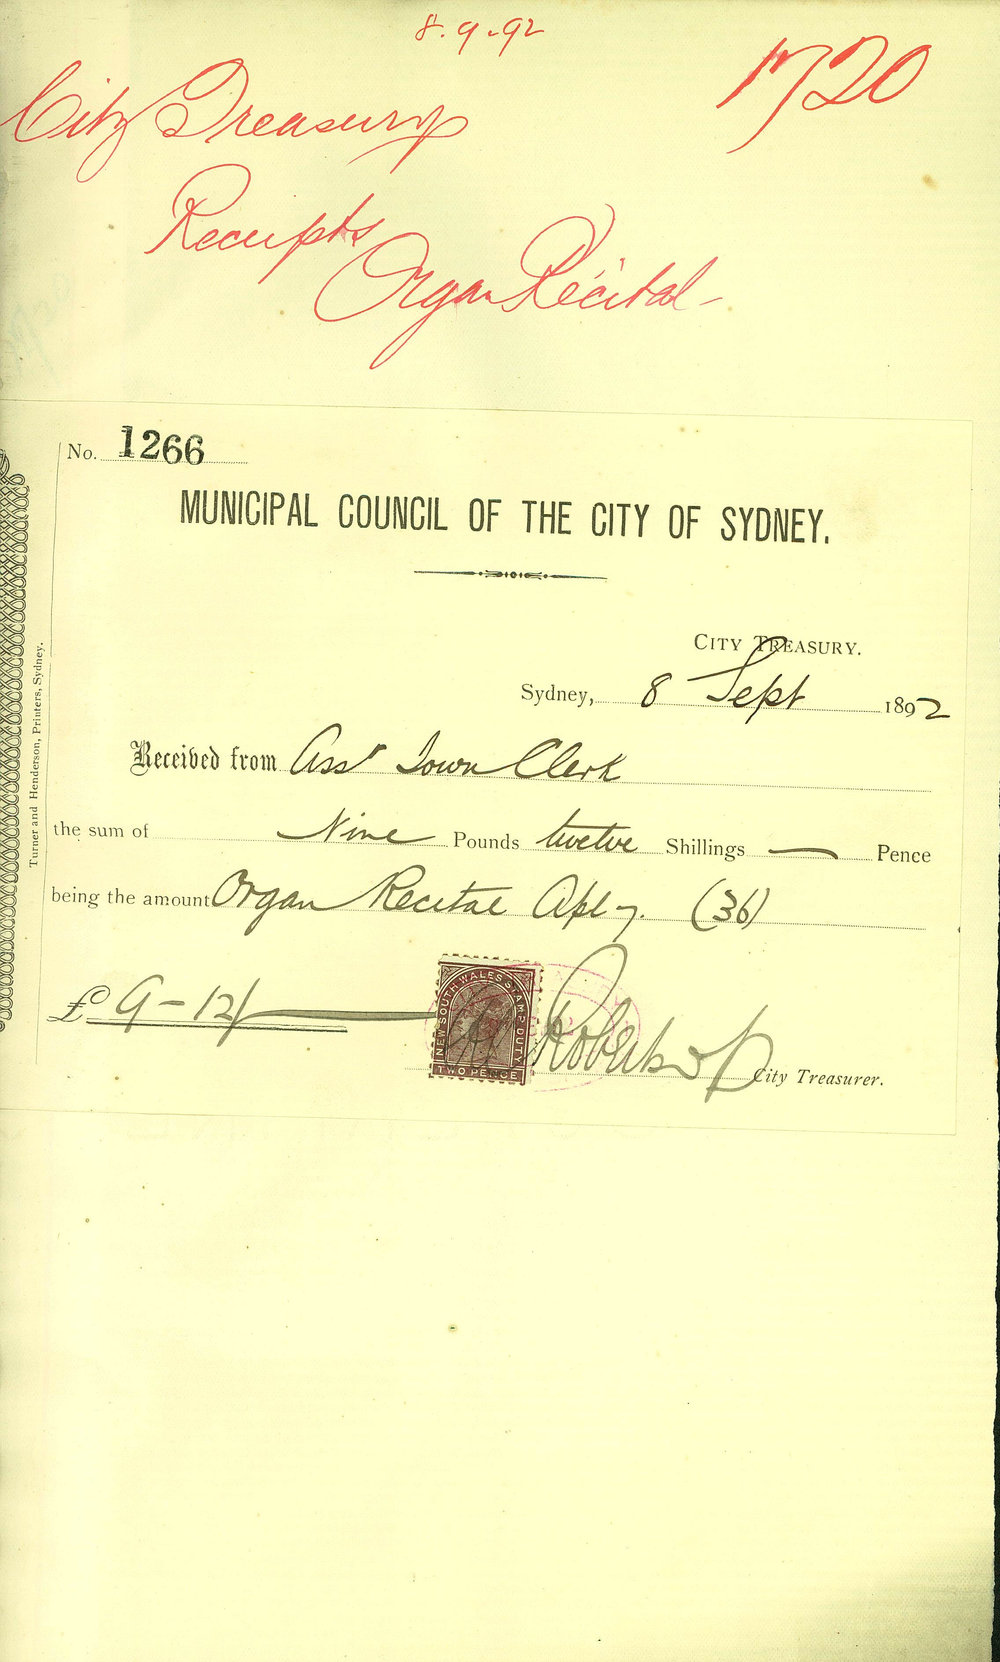 8.9.92
1720
City Treasury
Receipts
Organ Recital
No. 1266
MUNICIPAL COUNCIL OF THE CITY OF SYDNEY.
CITY TREASURY.
Sydney, 8 Sept 1892
Received from Asst Town Clerk
the sum of Nine Pounds twelve Shillings — Pence
being the amount Organ Recital (36)
£ 9 - 12/
NEW SOUTH WALES STAMP DUTY
TWO PENCE
City Treasurer.
Turner and Henderson, Printers, Sydney.